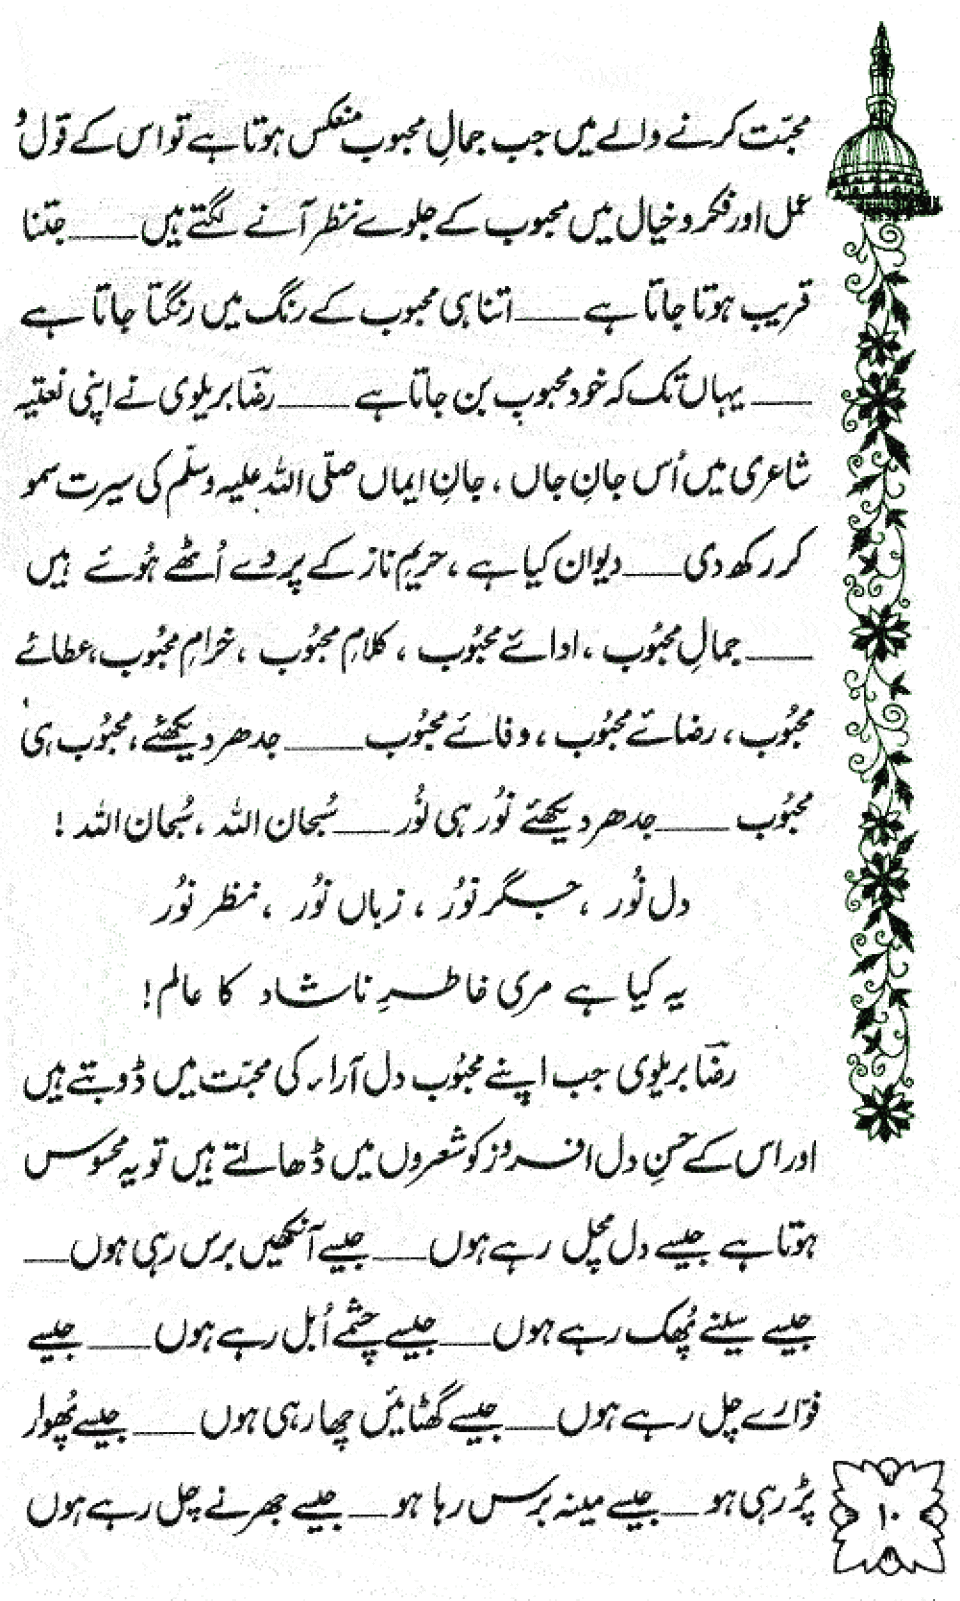 محبّت کرنے والے میں جب جمالِ محبوب منعکس ہوتا ہے تو اس کے قول و
عمل اور فکر و خیال میں محبوب کے جلوے نظر آنے لگتے ہیں ــــــ جتنا
قریب ہوتا جاتا ہے ــــــ اتنا ہی محبوب کے رنگ میں رنگتا جاتا ہے
ــــــ یہاں تک کہ خود محبوب بن جاتا ہے ــــــ رضؔا بریلوی نے اپنی نعتیہ
شاعری میں اُس جانِ جاں ، جانِ ایماں صلّی اللہ علیہ وسلّم کی سیرت سمو
کر رکھ دی ــــــ دیوان کیا ہے ، حریمِ ناز کے پردے اُٹھے ہُوئے ہیں
ــــــ جمالِ محبُوب ، ادائے محبُوب ، کلامِ محبُوب ، خرامِ محبُوب، عطائے
محبُوب ، رضائے محبُوب ، وفائے محبُوب ــــــ جدھر دیکھئے ، محبُوب ہی
محبُوب ــــــ جدھر دیکھئے نوُر ہی نوُر ــــــ سُبحان اللہ ، سُبحان اللہ !
دل نوُر ، جگر نوُر ، زباں نوُر ، نظر نوُر
یہ کیا ہے مری خاطرِ ناشاد کا عالم!
رضؔا بریلوی جب اپنے محبُوب دل آراء کی محبّت میں ڈوبتے ہیں
اور اس کے حسنِ دل افروز کو شعروں میں ڈھالتے ہیں تو یہ محسوس
ہوتا ہے جیسے دل مچل رہے ہوں ــــــ جیسے آنکھیں برس رہی ہوں ــــــ
جیسے سینے پُھک رہے ہوں ــــــ جیسے چشمے اُبل رہے ہوں ــــــ جیسے
فوّارے چل رہے ہوں ــــــ جیسے گھٹائیں چھا رہی ہوں ــــــ جیسے پُھوار
پڑ رہی ہو ــــــ جیسے مینہ برس رہا ہو ــــــ جیسے جھرنے چل رہے ہوں
۱۰